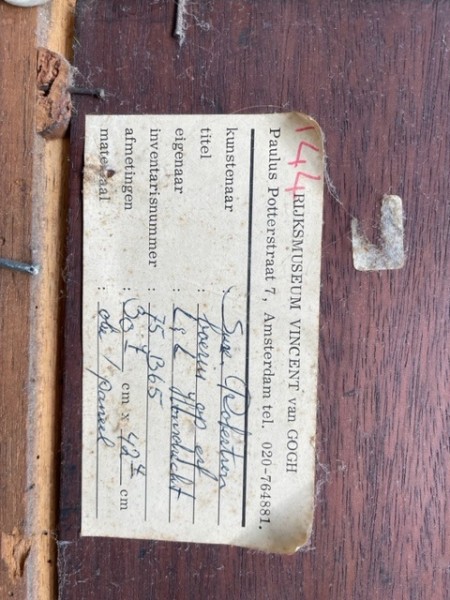 144
RIJKSMUSEUM VINCENT van GOGH
Paulus Potterstraat 7, Amsterdam tel. 020-764881.
kunstenaar : Suze Robertson
titel : boerin op erf
eigenaar :
inventarisnummer : 75 B65
afmetingen : 30⁷ cm x 42⁴ cm
materiaal : olie / paneel